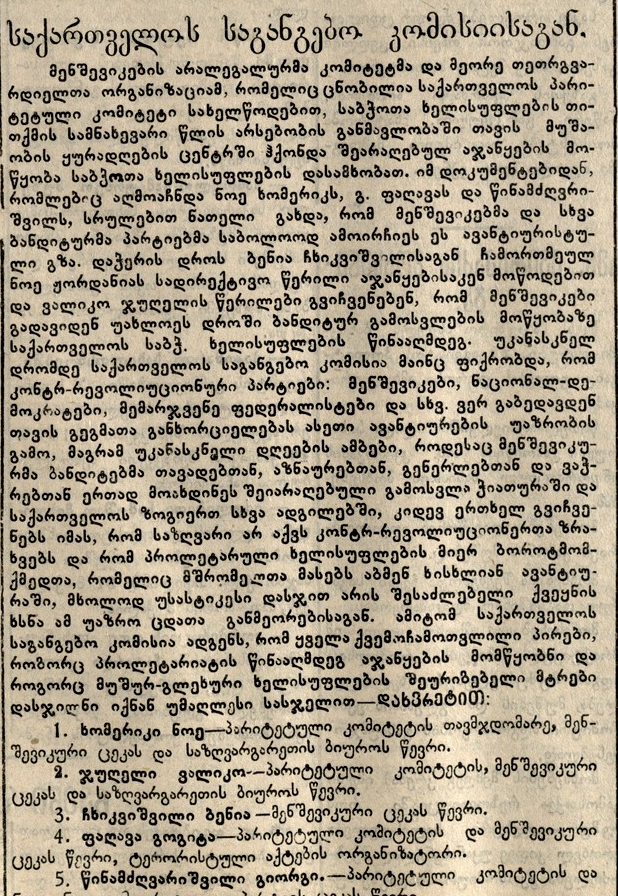 საქართველოს საგანგებო კომისიისაგან.
მენშევიკების არალეგალურმა კომიტეტმა და მეორე თეთრგვა-
რდიელთა ორგანიზაციამ, რომელიც ცნობილია საქართველოს პარი-
ტეტული კომიტეტი სახელწოდებით, საბჭოთა ხელისუფლების თი-
თქმის სამნახევარი წლის არსებობის განმავლობაში თავის მუშა-
ობის ყურადღების ცენტრში ჰქონდა შეარაღებულ აჯანყების მო-
წყობა საბჭოთა ხელისუფლების დასამხობათ. იმ დოკუმენტებიდან,
რომლებიც აღმოაჩნდა ნოე ხომერიკს, გ. ფაღავას და წინამძღვრი-
შვილს, სრულებით ნათელი გახდა, რომ მენშევიკებმა და სხვა
ბანდიტურმა პარტიებმა საბოლოოდ ამოირჩიეს ეს ავანტიურისტუ-
ლი გზა. დაჭერის დროს ბენია ჩხიკვიშვილისაგან ჩამორთმეულ
ნოე ჟორდანიას სადირექტივო წერილი აჯანყებისაკენ მოწოდებით
და ვალიკო ჯუღელის წერილები გვიჩვენებენ, რომ მენშევიკები
გადავიდენ უახლოეს დროში ბანდიტურ გამოსვლების მოწყობაზე
საქართველოს საბჭ. ხელისუფლების წინააღმდეგ. უკანასკნელ
დრომდე საქართველოს საგანგებო კომისია მაინც ფიქრობდა, რომ
კონტრ-რევოლიუციონური პარტიები: მენშევიკები, ნაციონალ-დე-
მოკრატები, მემარჯვენე ფედერალისტები და სხვ. ვერ გაბედავდენ
თავის გეგმათა განხორციელებას ასეთი ავანტიურების უაზრობის
გამო, მაგრამ უკანასკნელი დღეების ამბები, როდესაც მენშევიკუ-
რმა ბანდიტებმა თავადებთან, აზნაურებთან, გენერლებთან და ვაჭ-
რებთან ერთად მოახდინეს შეიარაღებული გამოსვლა ჭიათურაში და
საქართველოს ზოგიერთ სხვა ადგილებში, კიდევ ერთხელ გვიჩვე-
ნებს იმას, რომ საზღვარი არ აქვს კონტრ-რევოლიუციონერთა ზრა-
ხვებს და რომ პროლეტარული ხელისუფლების მიერ ბოროტმომ-
ქმედთა, რომელიც მშრომელთა მასებს აბმენ სისხლიან ავანტიუ-
რაში, მხოლოდ უსასტიკესი დასჯით არის შესაძლებელი ქვეყნის
ხსნა ამ უაზრო ცდათა განმეორებისაგან. ამიტომ საქართველოს
საგანგებო კომისია ადგენს, რომ ყველა ქვემოჩამოთვლილი პირები,
როგორც პროლეტარიატის წინააღმდეგ აჯანყების მომწყობნი და
როგორც მუშურ-გლეხური ხელისუფლების შეურიბებელი მტრები
დასჯილნი იქნან უმაღლესი სასჯელით—დახვრეტით:
1. ხომერიკი ნოე—პარიტეტული კომიტეტის თავმჯდომარე, მენ-
შევიკური ცეკას და საზღვარგარეთის ბიუროს წევრი.
2. ჯუღელი ვალიკო—პარიტეტული კომიტეტის, მენშევიკური
ცეკას და საზღვარგარეთის ბიუროს წევრი.
3. ჩხიკვიშვილი ბენია—მენშევიკური ცეკას წევრი.
4. ფაღავა გოგიტა—პარიტეტული კომიტეტის და მენშევიკური
ცეკას წევრი, ტერორისტული აქტების ორგანიზატორი.
5. წინამძღვარიშვილი გიორგი.—პარიტეტული კომიტეტის და